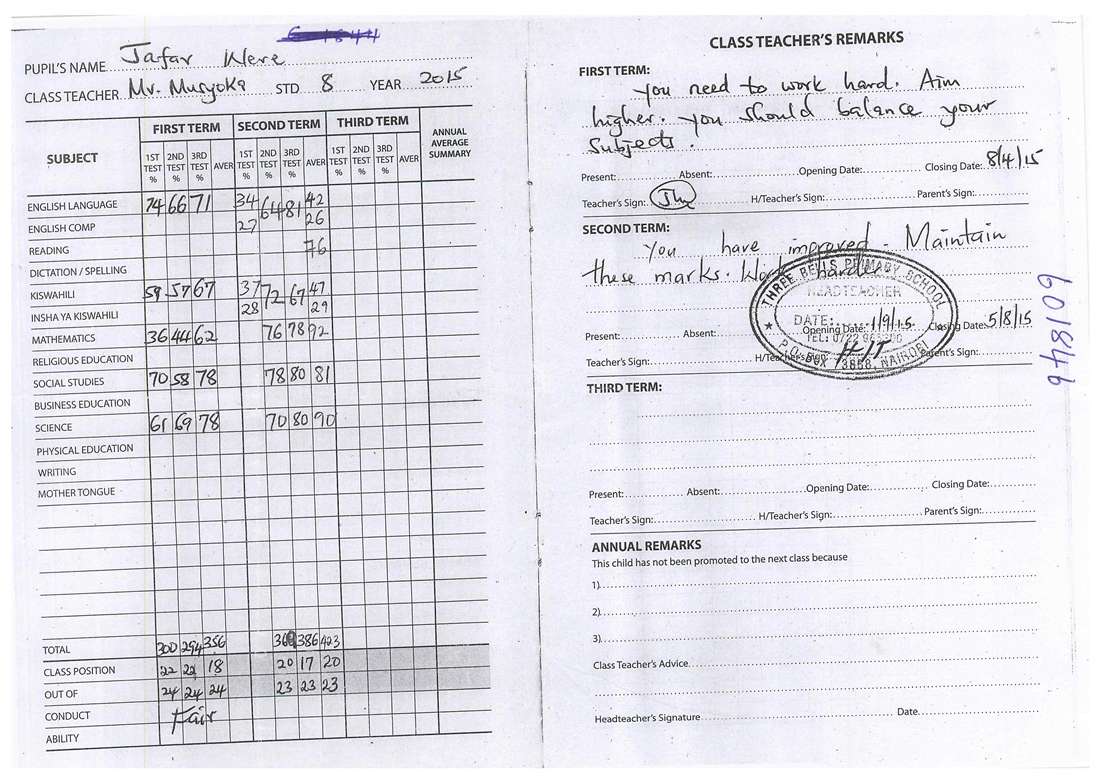 PUPIL'S NAME Jafar Were
CLASS TEACHER Mr. Musyoka STD 8 YEAR 2015
SUBJECT FIRST TERM SECOND TERM THIRD TERM ANNUAL AVERAGE SUMMARY
1ST TEST % 2ND TEST % 3RD TEST % AVER 1ST TEST % 2ND TEST % 3RD TEST % AVER 1ST TEST % 2ND TEST % 3RD TEST % AVER
ENGLISH LANGUAGE 74 66 71 34 64 81 42
ENGLISH COMP 27 26
READING 76
DICTATION / SPELLING
KISWAHILI 59 57 67 37 72 67 47
INSHA YA KISWAHILI 28 29
MATHEMATICS 36 44 62 76 78 92
RELIGIOUS EDUCATION
SOCIAL STUDIES 70 58 78 78 80 81
BUSINESS EDUCATION
SCIENCE 61 69 78 70 80 90
PHYSICAL EDUCATION
WRITING
MOTHER TONGUE
TOTAL 300 294 356 360 386 423
CLASS POSITION 22 22 18 20 17 20
OUT OF 24 24 24 23 23 23
CONDUCT Fair
ABILITY
CLASS TEACHER'S REMARKS
FIRST TERM:
You need to work hard. Aim
higher. You should balance your
subjects.
Present: Absent: Opening Date: Closing Date: 8/4/15
Teacher's Sign: H/Teacher's Sign: Parent's Sign:
SECOND TERM:
You have improved. Maintain
these marks. Work harder
THREE BELLS PRIMARY SCHOOL
HEADTEACHER
DATE:
Present: Absent: Opening Date: 1/9/15 Closing Date: 5/8/15
TEL: 0722
Teacher's Sign: H/Teacher's Sign: Parent's Sign:
P.O. BOX 73858, NAIROBI
601846
THIRD TERM:
Present: Absent: Opening Date: Closing Date:
Teacher's Sign: H/Teacher's Sign: Parent's Sign:
ANNUAL REMARKS
This child has not been promoted to the next class because
1)
2)
3)
Class Teacher's Advice
Headteacher's Signature Date